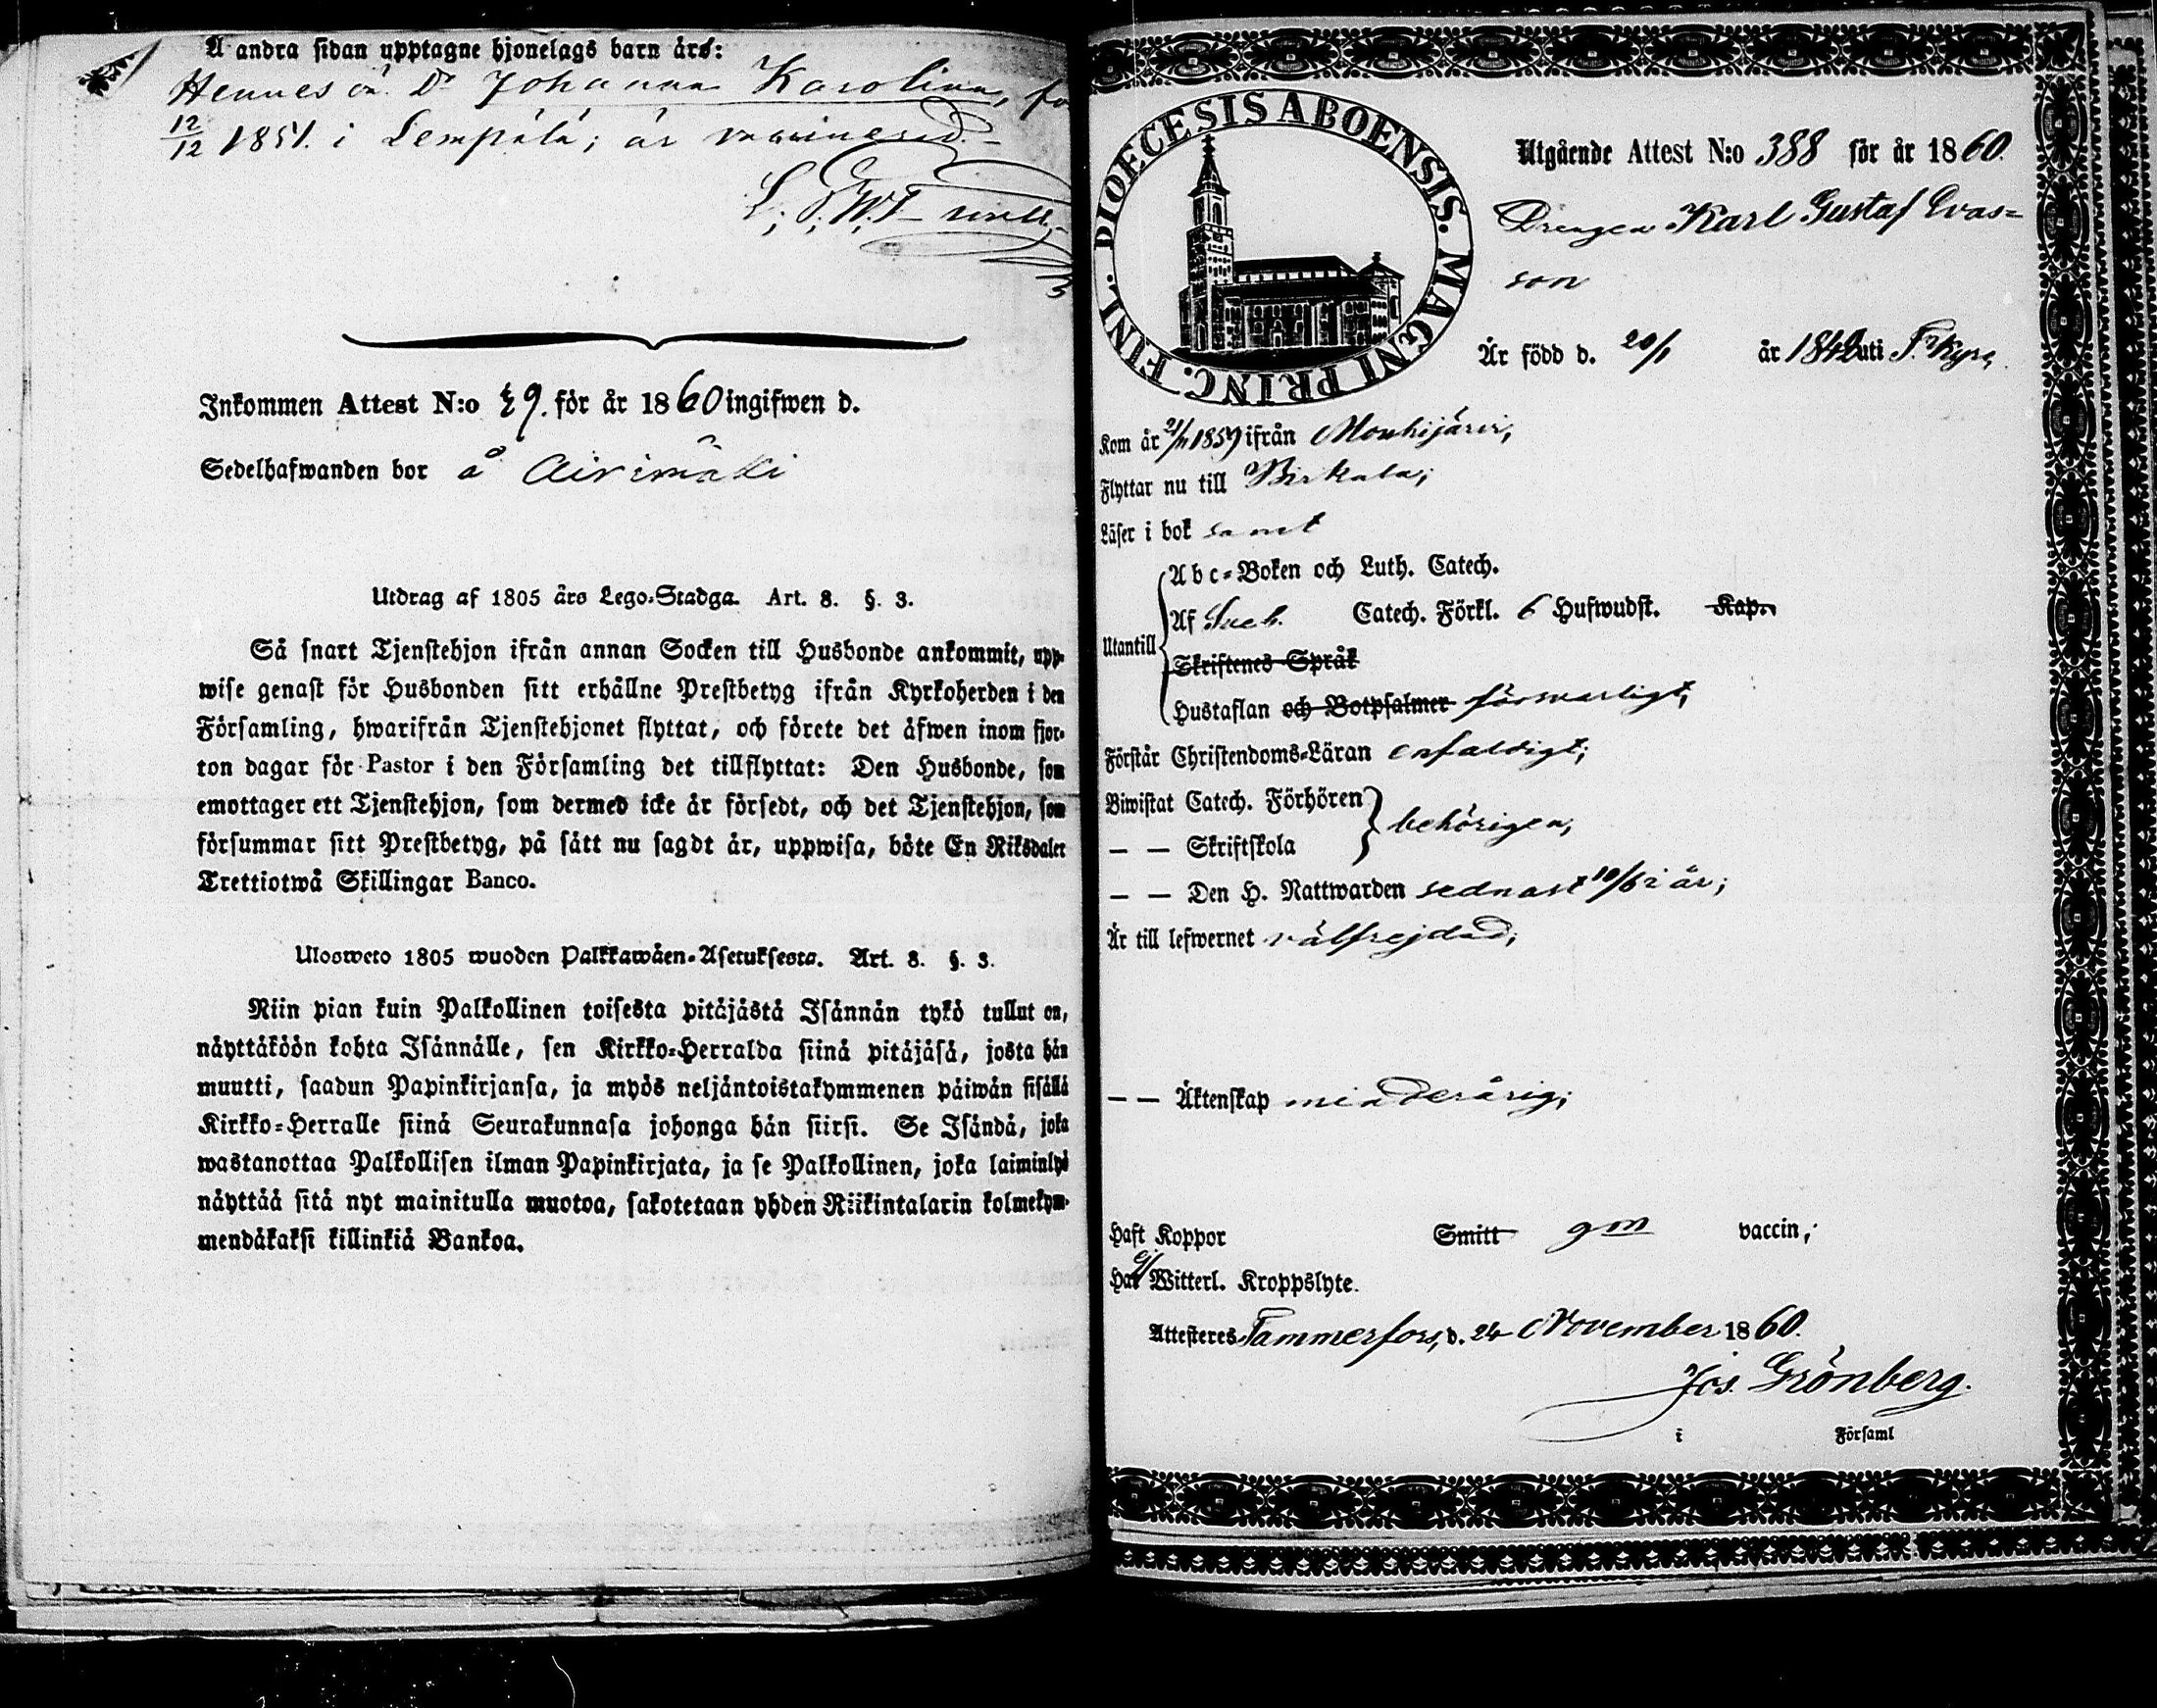 Å andra sidan upptagne hjonelags barn äro:
Hennes oä. Dr Johanna Karolina, fö
12/12 1851. i Lempälä; är vaccinerad.
Inkommen Attest N:o 29. för år 1860 ingifwen d.
Sedelhafwanden bor å Airimäki
Utdrag af 1805 års Lego-Stadga. Art. 8. §. 3.
Så snart Tjenstehjon ifrån annan Socken till Husbonde ankommit, upp-
wise genast för Husbonden sitt erhållne Prestbetyg ifrån Kyrkoherden i den
Församling, hwarifrån Tjenstehjonet flyttat, och förete det äfwen inom fjor-
ton dagar för Pastor i den Församling det tillflyttat: Den Husbonde, som
emottager ett Tjenstehjon, som dermed icke är försedt, och det Tjenstehjon, som
försummar sitt Prestbetyg, på sätt nu sagdt är, uppwisa, böte En Riksdaler
Trettiotwå Skillingar Banco.
Ulosweto 1805 wuoden Palkkawäen-Asetuksesta. Art. 8. §. 3.
Niin pian kuin Palkollinen toisesta pitäjästä Isännän tykö tullut on,
näyttäköön kohta Isännälle, sen Kirkko-Herralda siinä pitäjäsä, josta hän
muutti, saadun Papinkirjansa, ja myös neljäntoistakymmenen päiwän sisällä
Kirkko-Herralle siinä Seurakunnasa johonga hän siirsi. Se Isändä, joka
wastanottaa Palkollisen ilman Papinkirjata, ja se Palkollinen, joka laiminlyö
näyttää sitä nyt mainitulla muotoa, sakotetaan yhden Riikintalarin kolmekym-
mendäkaksi killinkiä Bankoa.
DIOECESIS ABOENSIS. MAGNI PRINC. FINL.
Utgående Attest N:o 388 för år 1860.
Drengen Karl Gustaf Evas=
son
Är född d. 20/1 år 1842 uti T. Kyro,
Kom år 21/11 1859 ifrån Mouhijärvi,
Flyttar nu till Birkala;
Läser i bok samt
Utantill
Abc-Boken och Luth. Catech.
Af Sveb. Catech. Förkl. 6 Hufwudst. Kap.
Skriftenes Språk
Hustaflan och Botpsalmer försvarligt,
Förstår Christendoms-Läran enfaldigt;
Biwistat Catech. Förhören
behörigen,
— — Skriftskola
— — Den H. Nattwarden sednast 10/6 i år;
Är till lefwernet välfrejdad;
— — Äktenskap minderårig;
Haft Koppor Smitt gm vaccin;
Har ej Witterl. Kroppslyte.
Attesteres Tammerfors, d. 24 November 1860.
Jos. Grönberg.
i Församl